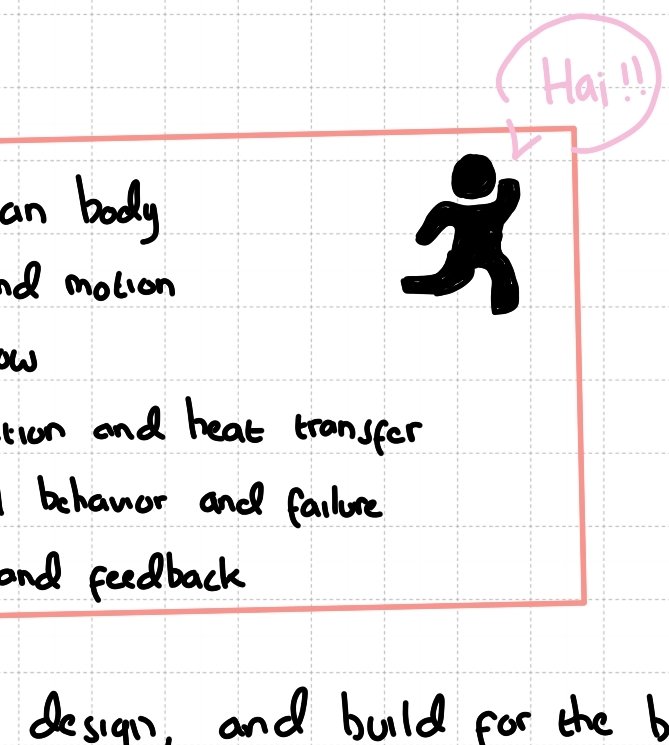 Hai!!
an body
nd motion
ow
tion and heat transfer
behavior and failure
and feedback
design, and build for the b